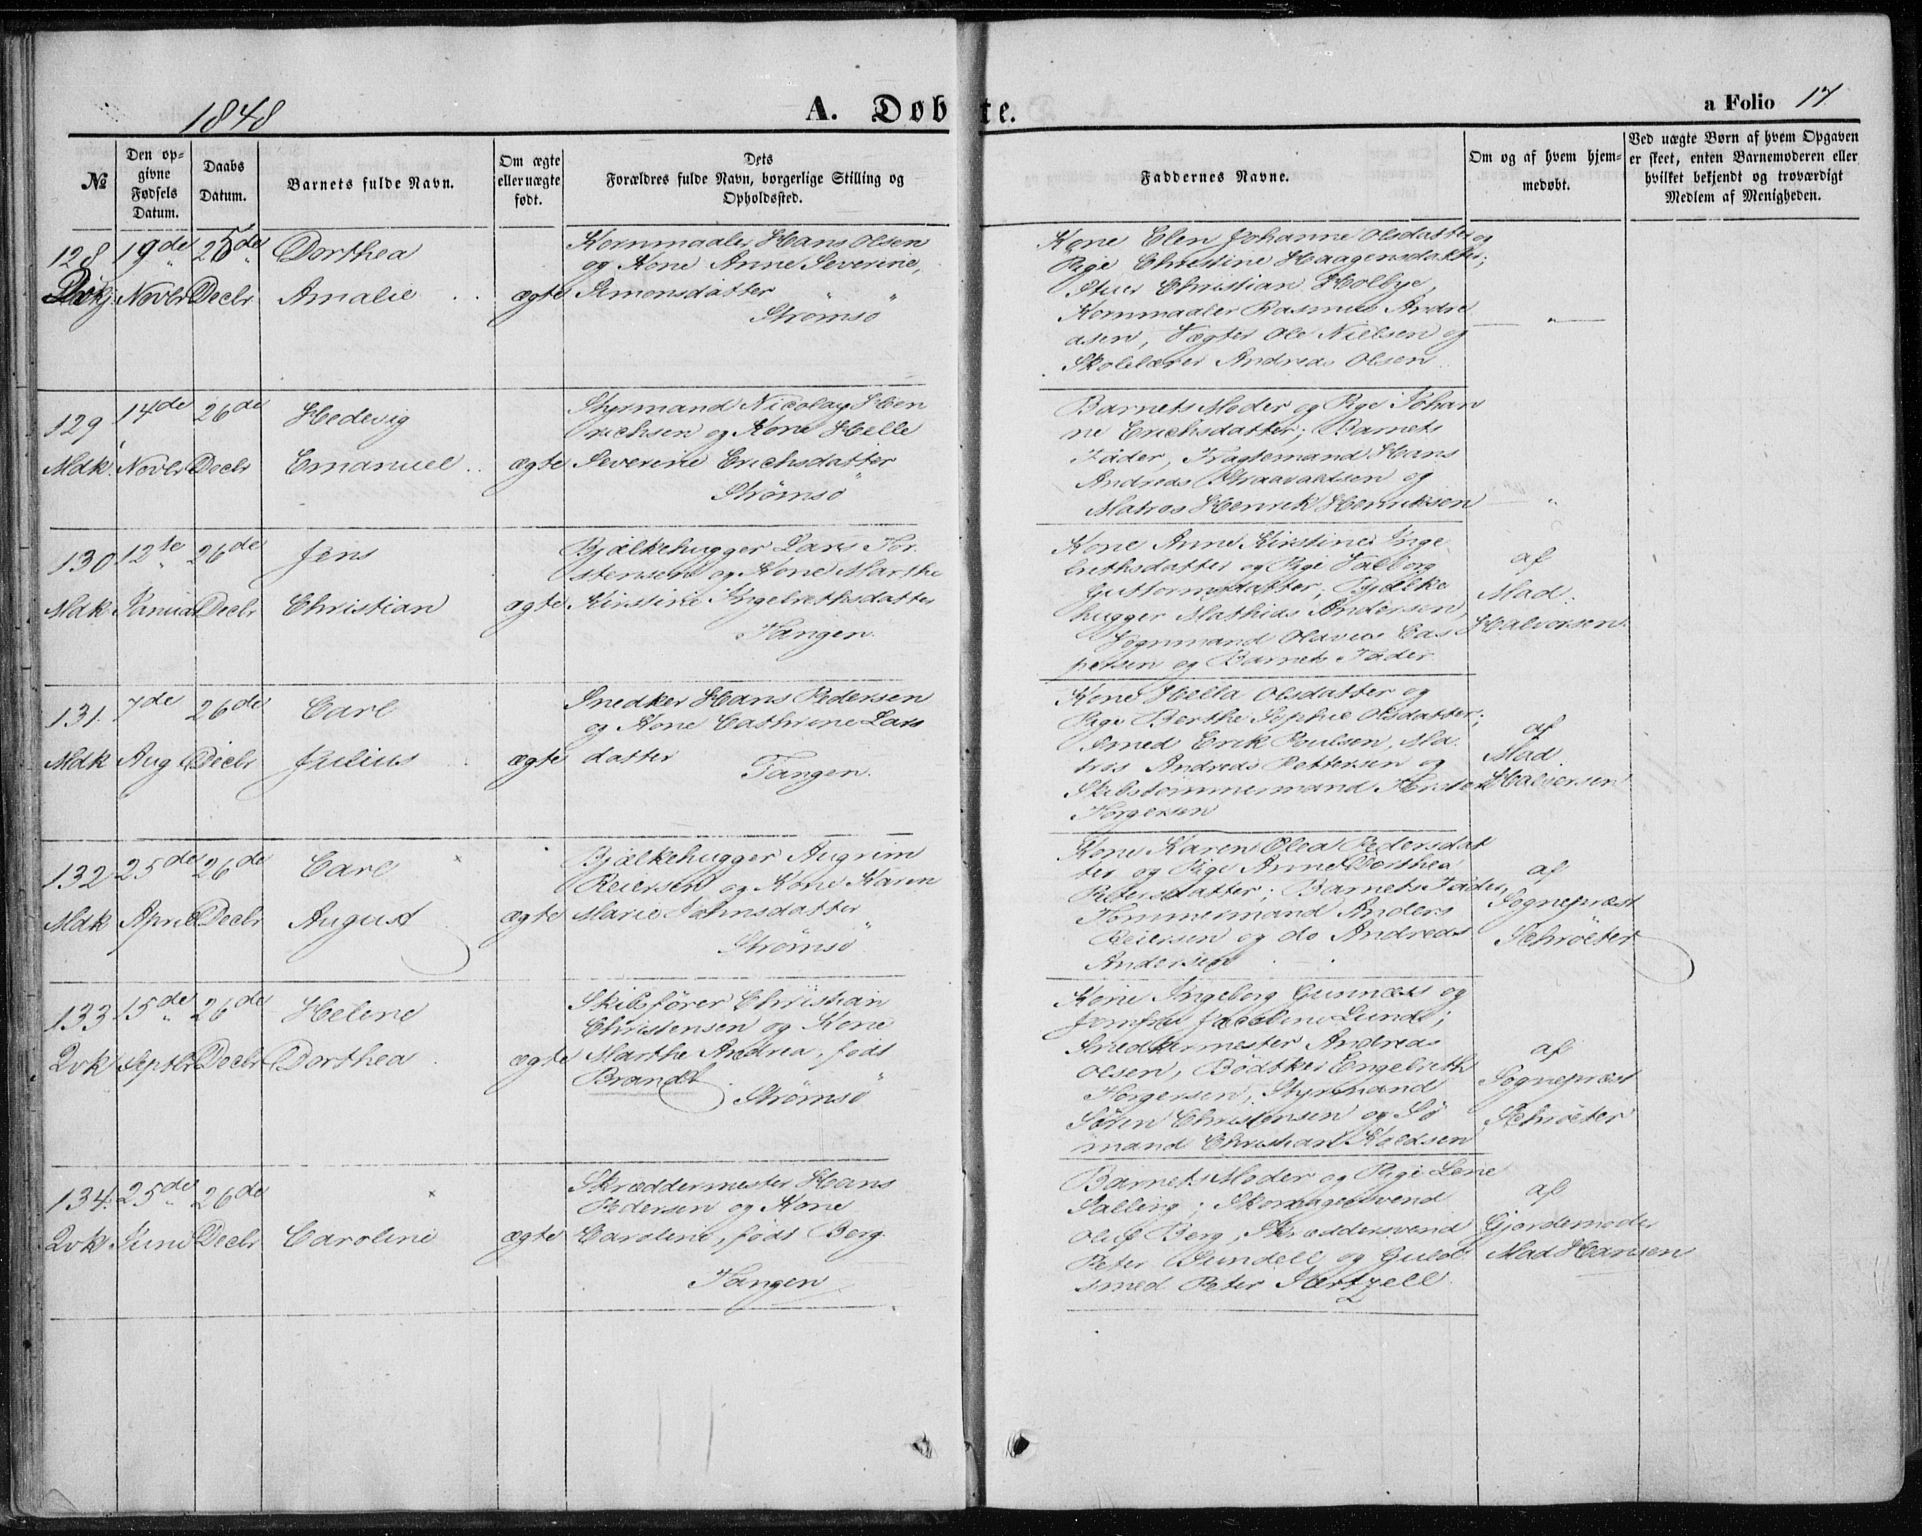 1848
A. Døbte.
a Folio 17
№
Den op-
givne
Fødsels
Datum.
Daabs
Datum.
Barnets fulde Navn.
Om ægte
eller uægte
født.
Dets
Forældres fulde Navn, borgerlige Stilling og
Opholdssted.
Faddernes Navne.
Om og af hvem hjem-
medøbt.
Ved uægte Børn af hvem Opgaven
er skeet, enten Barnemoderen eller
hvilket bekjendt og troværdigt
Medlem af Menigheden.
128 19de 25de Dorthea
Novbr Decbr Amalie ægte
Kornmaaler Hans Olsen
og Kone Anne Severine,
Simonsdatter
Strømsö
Kone Elen Johanne Olsdatter og
Pige Christine Haagensdatter;
Christian Holbye,
Kornmaaler Rasmus Andre
asen, Vægter Ole Nielsen og
Skolelærer Andreas Olsen
129 14de 26de Hedevig
Mdk Novbr Decbr Emanuel ægte
Styrmand Nicolay Hen
richsen og Kone Helle
Severine Erichsdatter
Strømsö
Barnets Moder og Pige Johan
ne Erichsdatter; Barnets
Fader, Fragtemand Hans
Andreas
og
Matros Henrik Henriksen
130 12te 26de Jens
Mdk Januar Decbr Christian ægte
Bjælkehugger Lars Tor
stensen og Kone Marthe
Kirstine Ingebrethsdatter
Tangen.
Kone Anne Kirstine Inge
brethsdatter og Pige Valborg
Guttormsdatter, Bjælke
hugger Mathias Andersen,
Sognmand Olavus Cas
persen og Barnets Fader
af
Mad.
Halvorsen.
131. 7de 26de Carl
Mdk Aug Decbr Julius ægte
Snedker Hans Pedersen
og Kone Cathrine Lars
datter
Tangen.
Kone Hella Olsdatter og
Pige Berthe Sophie Olsdatter;
Smed Erik Poulsen, Ma
tros Andreas Pettersen og
Skibstømmermand
Torgersen
af
Mad.
Halvorsen
132 25de 26de Carl
Mdk April Decbr August ægte
Bjælkehugger Augrim
Reiersen og Kone Karen
Marie Johnsdatter
Strømsö
Kone Karen Olea Pedersdat
ter og Pige Anne Dorthea
Petersdatter; Barnets Fader,
Tømmermand Anders
Reiersen og do Andreas
Andersen
af
Sognepræst
Schröeter
133 15de 26de Helene
Qvk Septbr Decbr Dorthea ægte
Skibsfører Christian
Christensen og Kone
Marthe Andrea, født
Brandt.
Strømsö
Kone Ingeborg Gunnæss og
Jomfru Jacobine Lund;
Snedkermester Andreas
Olsen, Bødtker Engebreth
Torgersen, Styrmand
Søren Christensen og Sö
mand Christian Knudsen
af
Sognepræst
Schröeter
134. 25de 26de
Qvk Juni Decbr Caroline ægte
Skræddermester Hans
Pedersen og Kone
Caroline, født Berg.
Tangen
Barnets Moder og Pige Lene
Salling; Skomagersvend
Oluf Berg, Skræddersvend
Peter Sundell og Guld
smed Peter Hertzell.
af
Gjordemoder
Mad Hansen